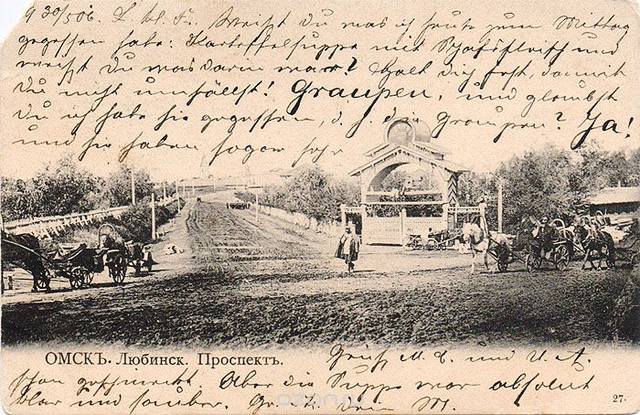 9 30/5 06. L. bl. Fr. Weißt Du was ich heute zum Mittag
gegessen habe: Kartoffelsuppe mit Schafsfleisch und
weißt Du was darin war? Halt Dich fest, damit
Du nicht umfällst! Graupen, und glaubst
Du ich habe sie gegessen, d. h. die Graupen? Ja!
und sie haben sogar sehr
ОМСКЪ. Любинск. Проспектъ.
Grüß M. L. und U. A.
schon geschmeckt. Aber die Suppe war absolut
klar und sauber. Gr. Dein M.
27.